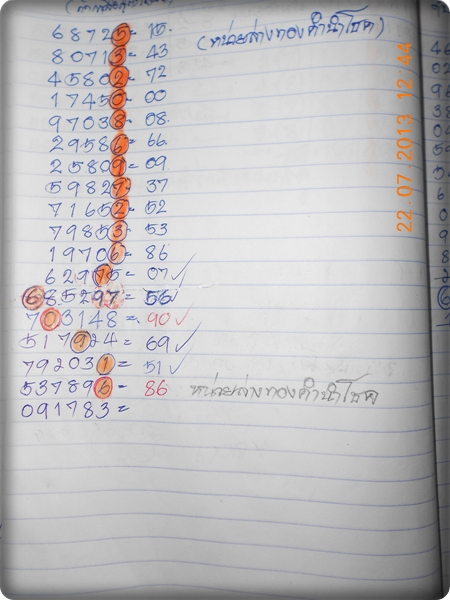 68725 = 15. (หน่วยล่างทองคำนำโชค)
80713 = 43
45802 = 72
17450 = 00
97038 = 08.
29586 = 66.
25809 = 09.
59827 = 37
71652 = 52
79853 = 53
19706 = 86
62975 = 07 ✓
685297 = 56 ✓
703148 = 90 ✓
517924 = 69 ✓
792031 = 51 ✓
537896 = 86 หน่วยล่างทองคำนำโชค
091783 =
22.07 2013 12 44